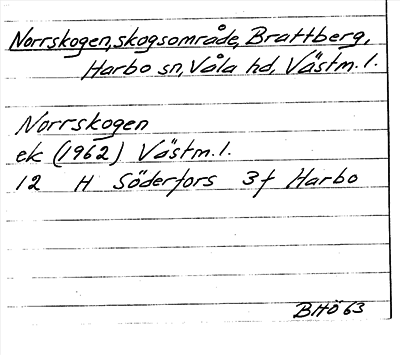 Norrskogen, skogsområde, Brattberg,
Harbo sn, Våla hd, Västm. l.
Norrskogen
ek (1962) Västm. l.
12 H Söderfors 3f Harbo
BHÖ 63